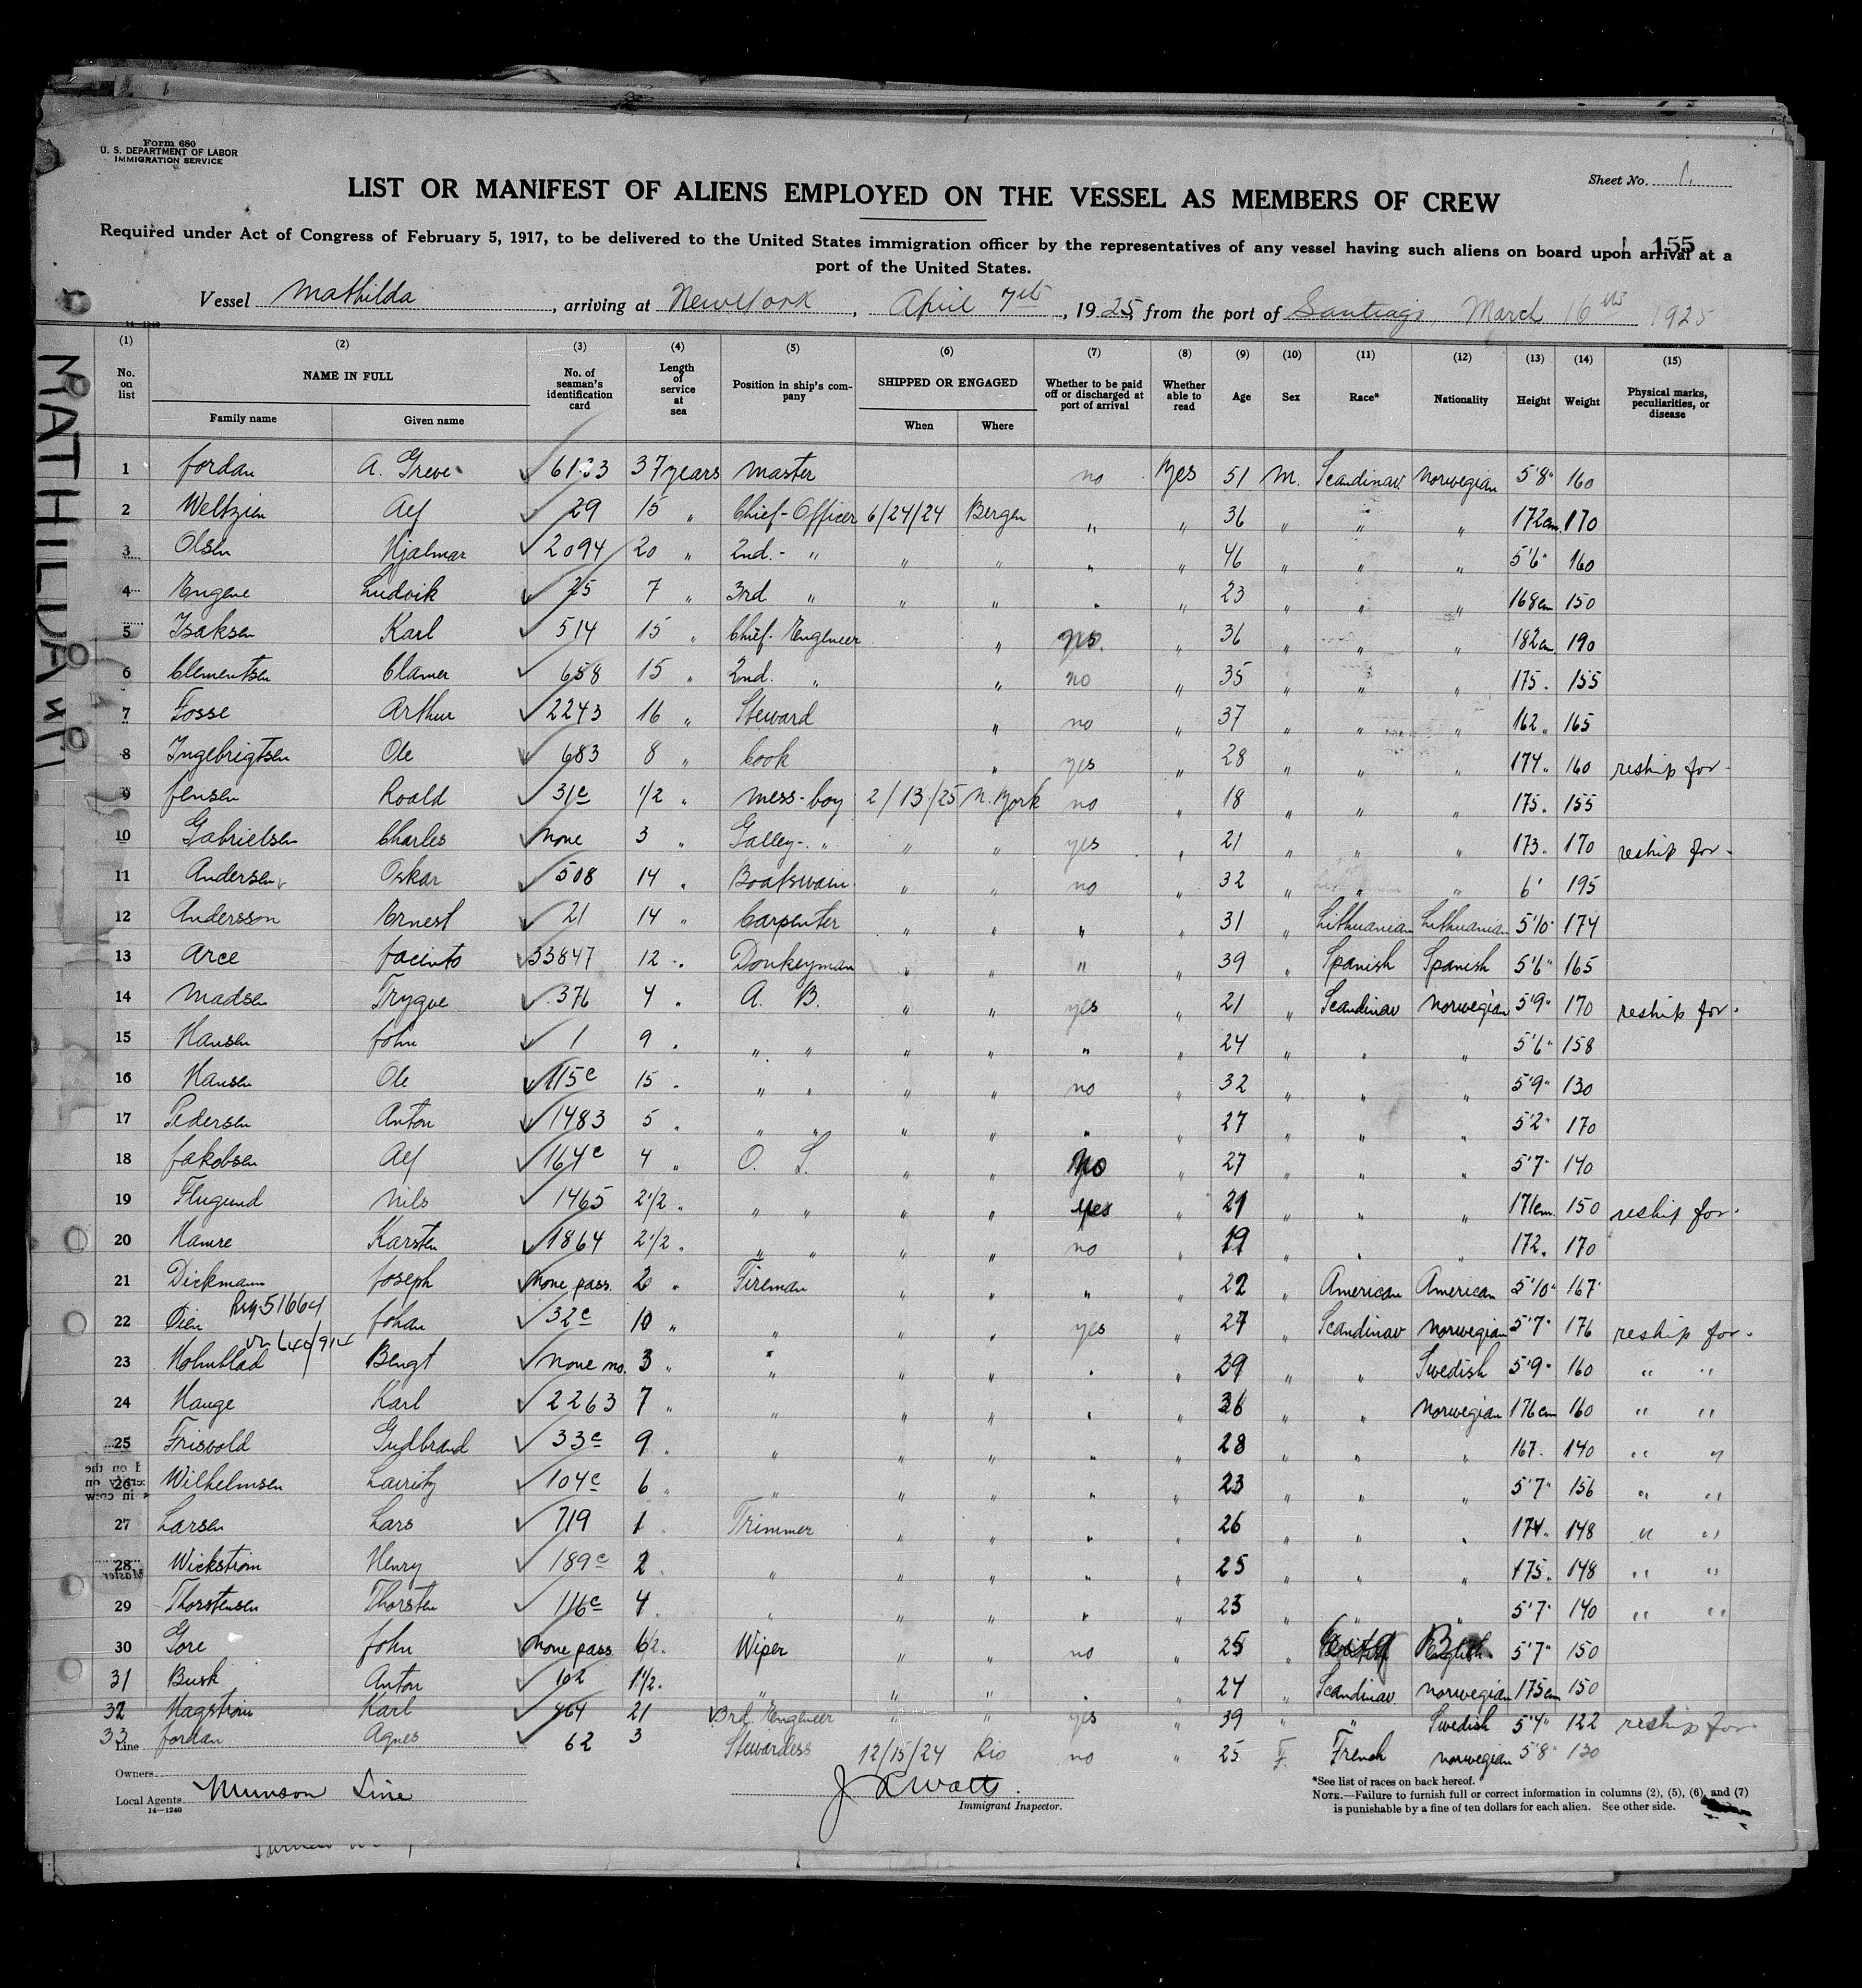 Form 680
U. S. DEPARTMENT OF LABOR
IMMIGRATION SERVICE
Sheet No. 1.
LIST OR MANIFEST OF ALIENS EMPLOYED ON THE VESSEL AS MEMBERS OF CREW
155
Required under Act of Congress of February 5, 1917, to be delivered to the United States immigration officer by the representatives of any vessel having such aliens on board upon arrival at a
port of the United States.
Vessel Mathilda, arriving at New York, April 7th, 1925, from the port of Santiago, March 16th 1925
14-1240
MATHILDA
(1) (2) (3) (4) (5) (6) (7) (8) (9) (10) (11) (12) (13) (14) (15)
No. on list NAME IN FULL No. of seaman's identification card Length of service at sea Position in ship's company SHIPPED OR ENGAGED Whether to be paid off or discharged at port of arrival Whether able to read Age Sex Race* Nationality Height Weight Physical marks, peculiarities, or disease
Family name Given name When Where
1 Jordan A. Greve 6133 37 years Master no Yes 51 M. Scandinav. Norwegian 5'8" 160
2 Weltzien Alf 29 15 " Chief-Officer 6/24/24 Bergen " " 36 " " " 172cm. 170
3 Olsen Hjalmar 2094 20 " 2nd.- " " " " " 46 " " " 5'6" 160
4 Engene Ludvik 25 7 " 3rd " " " " " 23 " " " 168cm 150
5 Isaksen Karl 514 15 " Chief-Engineer " yes. " 36 " " " 182cm. 190
6 Clementsen Clamer 658 15 " 2nd. " " no " 35 " " " 175. 155
7 Fosse Arthur 2243 16 " Steward " no " 37 " " " 162. 165
8 Ingebrigtsen Ole 683 8 " Cook " yes " 28 " " " 174. 160 reship for.
9 Jensen Roald 31c 1/2 " Mess-boy 2/13/25 N. York no " 18 " " " 175. 155
10 Gabrielsen Charles None 3 " Galley-. " " " yes " 21 " " " 173. 170 reship for.
11 Andersen Oskar 508 14 " Boatswain " " no " 32 " " " 6' 195
12 Andersson Ernest 21 14 " Carpenter " " " " 31 " Lithuanian Lithuanian 5'10" 174
13 Arce Jacinto 33847 12 " Donkeyman " " " " 39 " Spanish Spanish 5'6" 165
14 Madsen Trygve 376 4 " A. B. " " yes " 21 " Scandinav Norwegian 5'9" 170 reship for.
15 Hansen John 1 9 " " " " " " " 24 " " " 5'6" 158
16 Hansen Ole 115c 15 " " " " " no " 32 " " " 5'9" 130
17 Pedersen Anton 1483 5 " " " " " " " 27 " " " 5'2" 170
18 Jakobsen Alf 164c 4 " O. S. " " No " 27 " " " 5'7" 140
19 Flugund Nils 1465 2 1/2 " " " " " yes " 21 " " " 171cm. 150 reship for.
20 Hamre Karsten 1864 2 1/2 " " " " " no " 19 " " " 172. 170
21 Dickmann Joseph None pass. 2 " Fireman " " " " 22 " American American 5'10" 167
51664
22 Øien Johan 32c 10 " " " " yes " 27 " Scandinav Norwegian 5'7" 176 reship for.
23 Holmblad Bengt None no. 3 " " " " " " 29 " " Swedish 5'9" 160 " "
24 Hauge Karl 2263 7 " " " " " " 36 " " Norwegian 176cm 160 " "
25 Frisvold Gudbrand 33c 9 " " " " " " 28 " " " 167. 140 " "
26 Wilhelmsen Lauritz 104c 6 " " " " " " 23 " " " 5'7" 156 " "
27 Larsen Lars 719 1 " Trimmer " " " " 26 " " " 174. 148 " "
28 Wickstrom Henry 189c 2 " " " " " " 25 " " " 175. 148 " "
29 Thorstensen Thorsten 116c 4 " " " " " " 23 " " " 5'7" 140 " "
30 Gore John None pass 6 1/2 " Wiper " " no " 25 " English 5'7" 150
31 Busk Anton 102 1 1/2 " " " " " " 24 " Scandinav Norwegian 175cm 150
32 Hagstrom Karl 464 21 3rd. Engineer " " yes " 39 " " Swedish 5'4" 122 reship for.
33 Jordan Agnes 62 3 Stewardess 12/15/24 Rio no " 25 F. French Norwegian 5'8" 130
Line
Owners
Local Agents Munson Line
14-1240
Immigrant Inspector.
*See list of races on back hereof.
NOTE.—Failure to furnish full or correct information in columns (2), (5), (6), and (7)
is punishable by a fine of ten dollars for each alien. See other side.